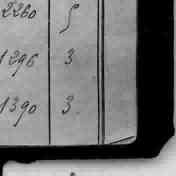 2260 5
1296 3
1390 3